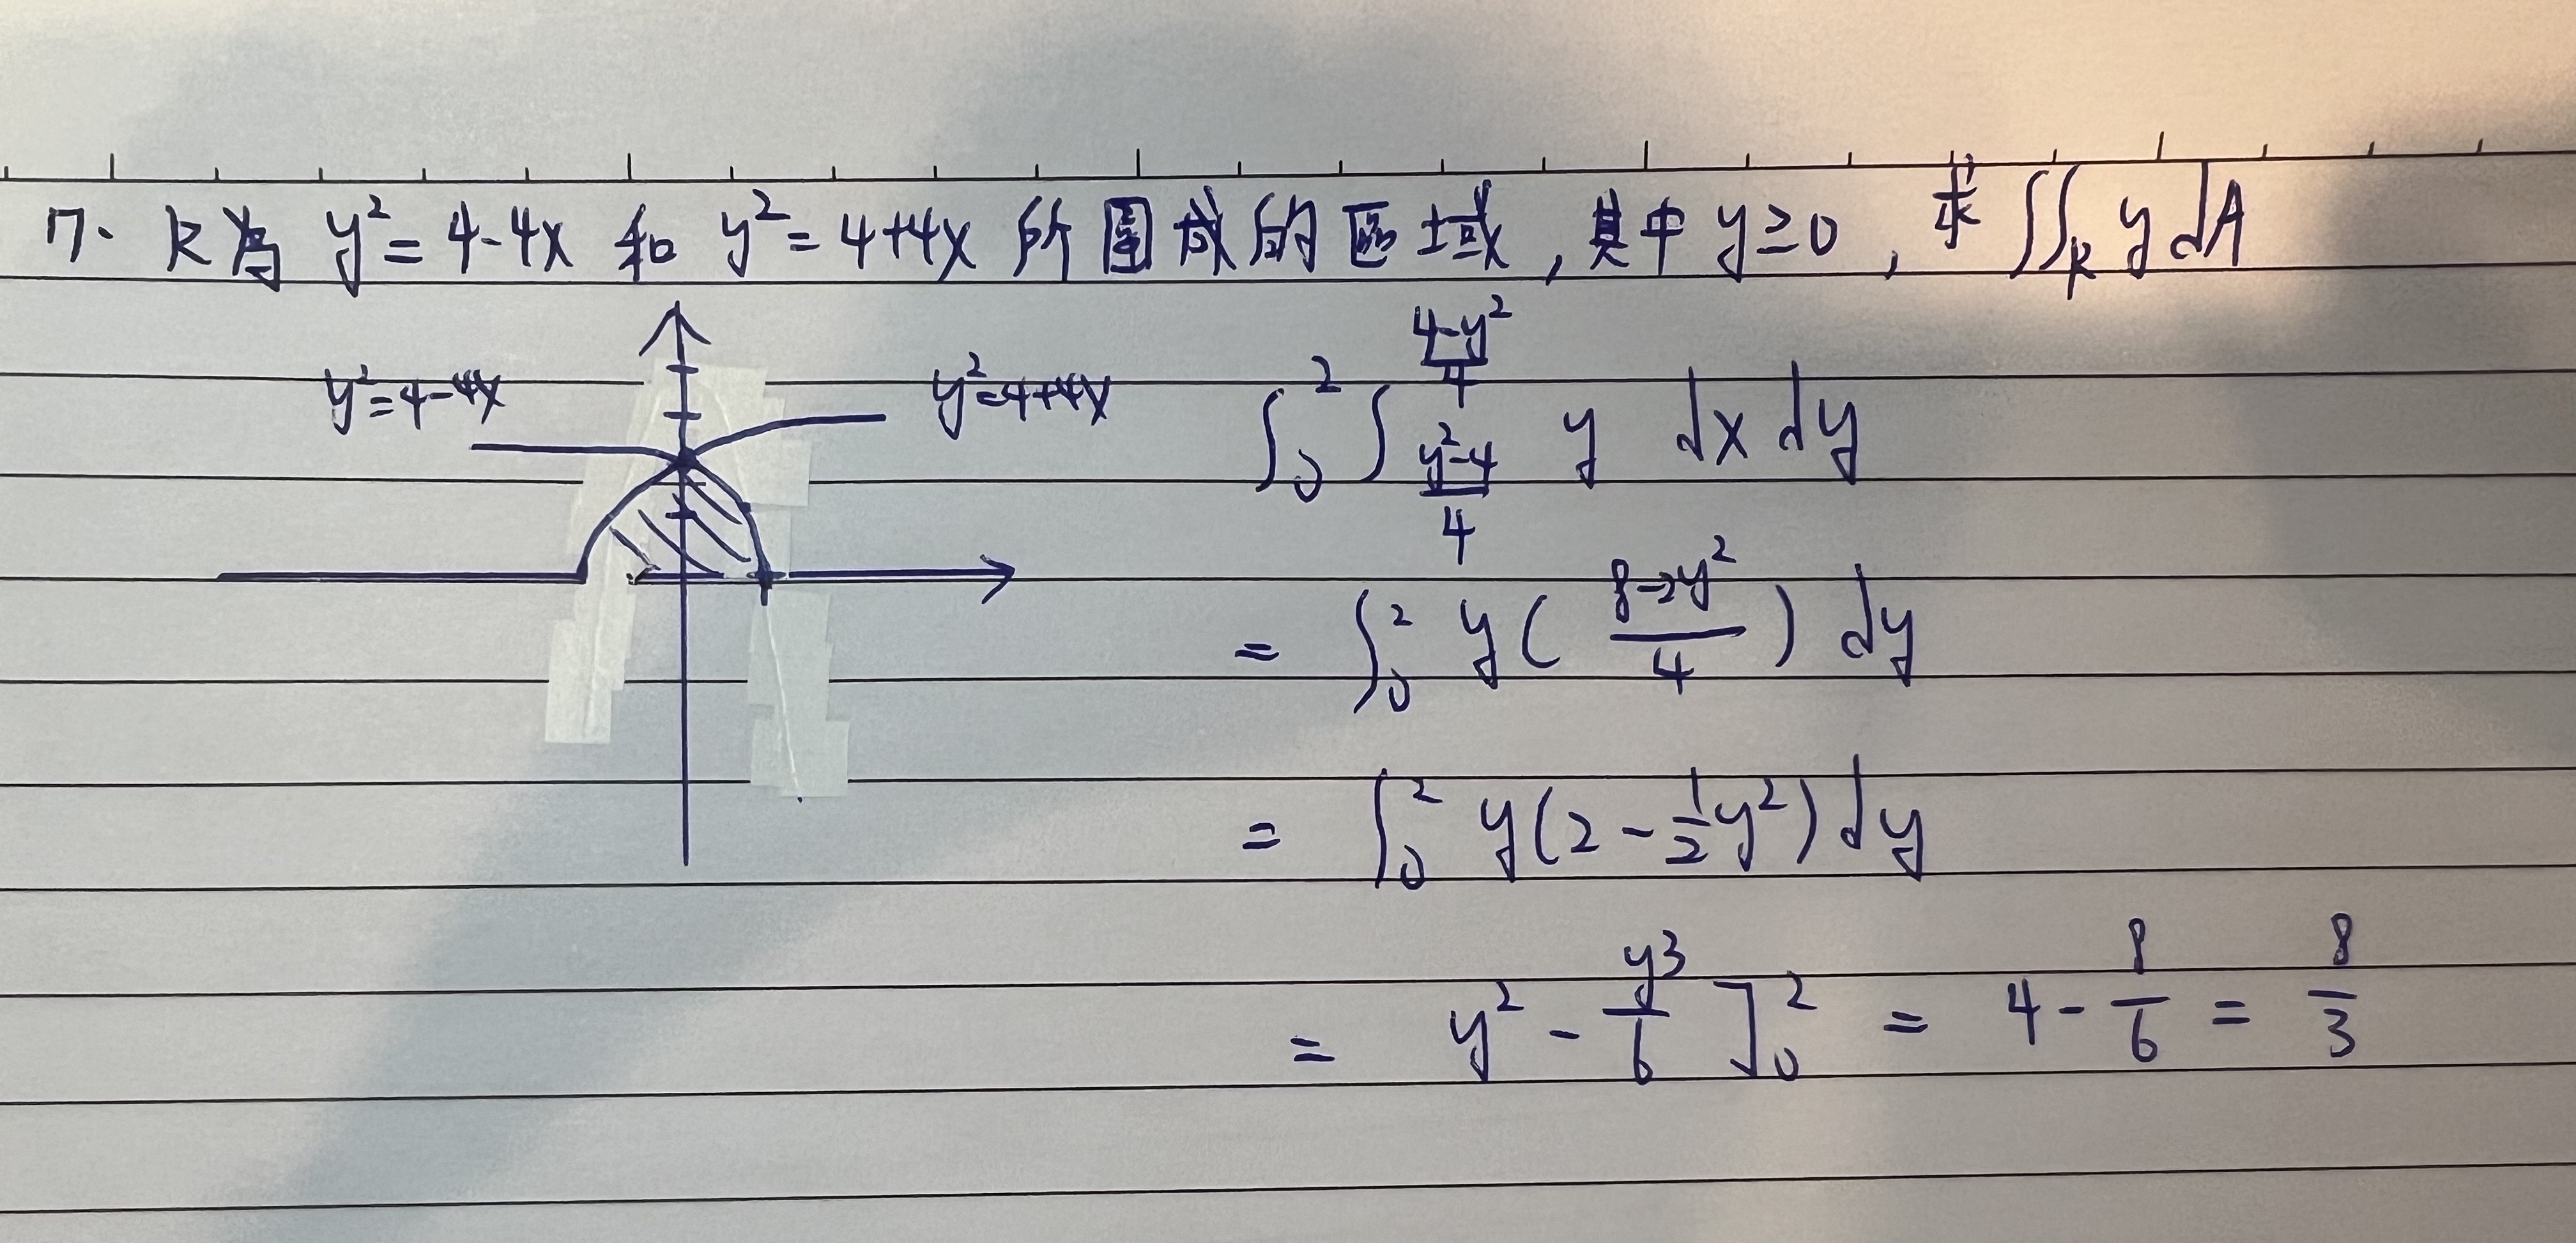 7. R為 y²=4-4x 和 y²=4+4x 所圍成的區域,其中 y≥0, 求 ∬_R y dA
y²=4-4x
y²=4+4x
∫₀² ∫_{(y²-4)/4}^{(4-y²)/4} y dx dy
= ∫₀² y( (8-2y²)/4 ) dy
= ∫₀² y(2-½y²) dy
= y² - y³/6 ]₀² = 4 - 8/6 = 8/3